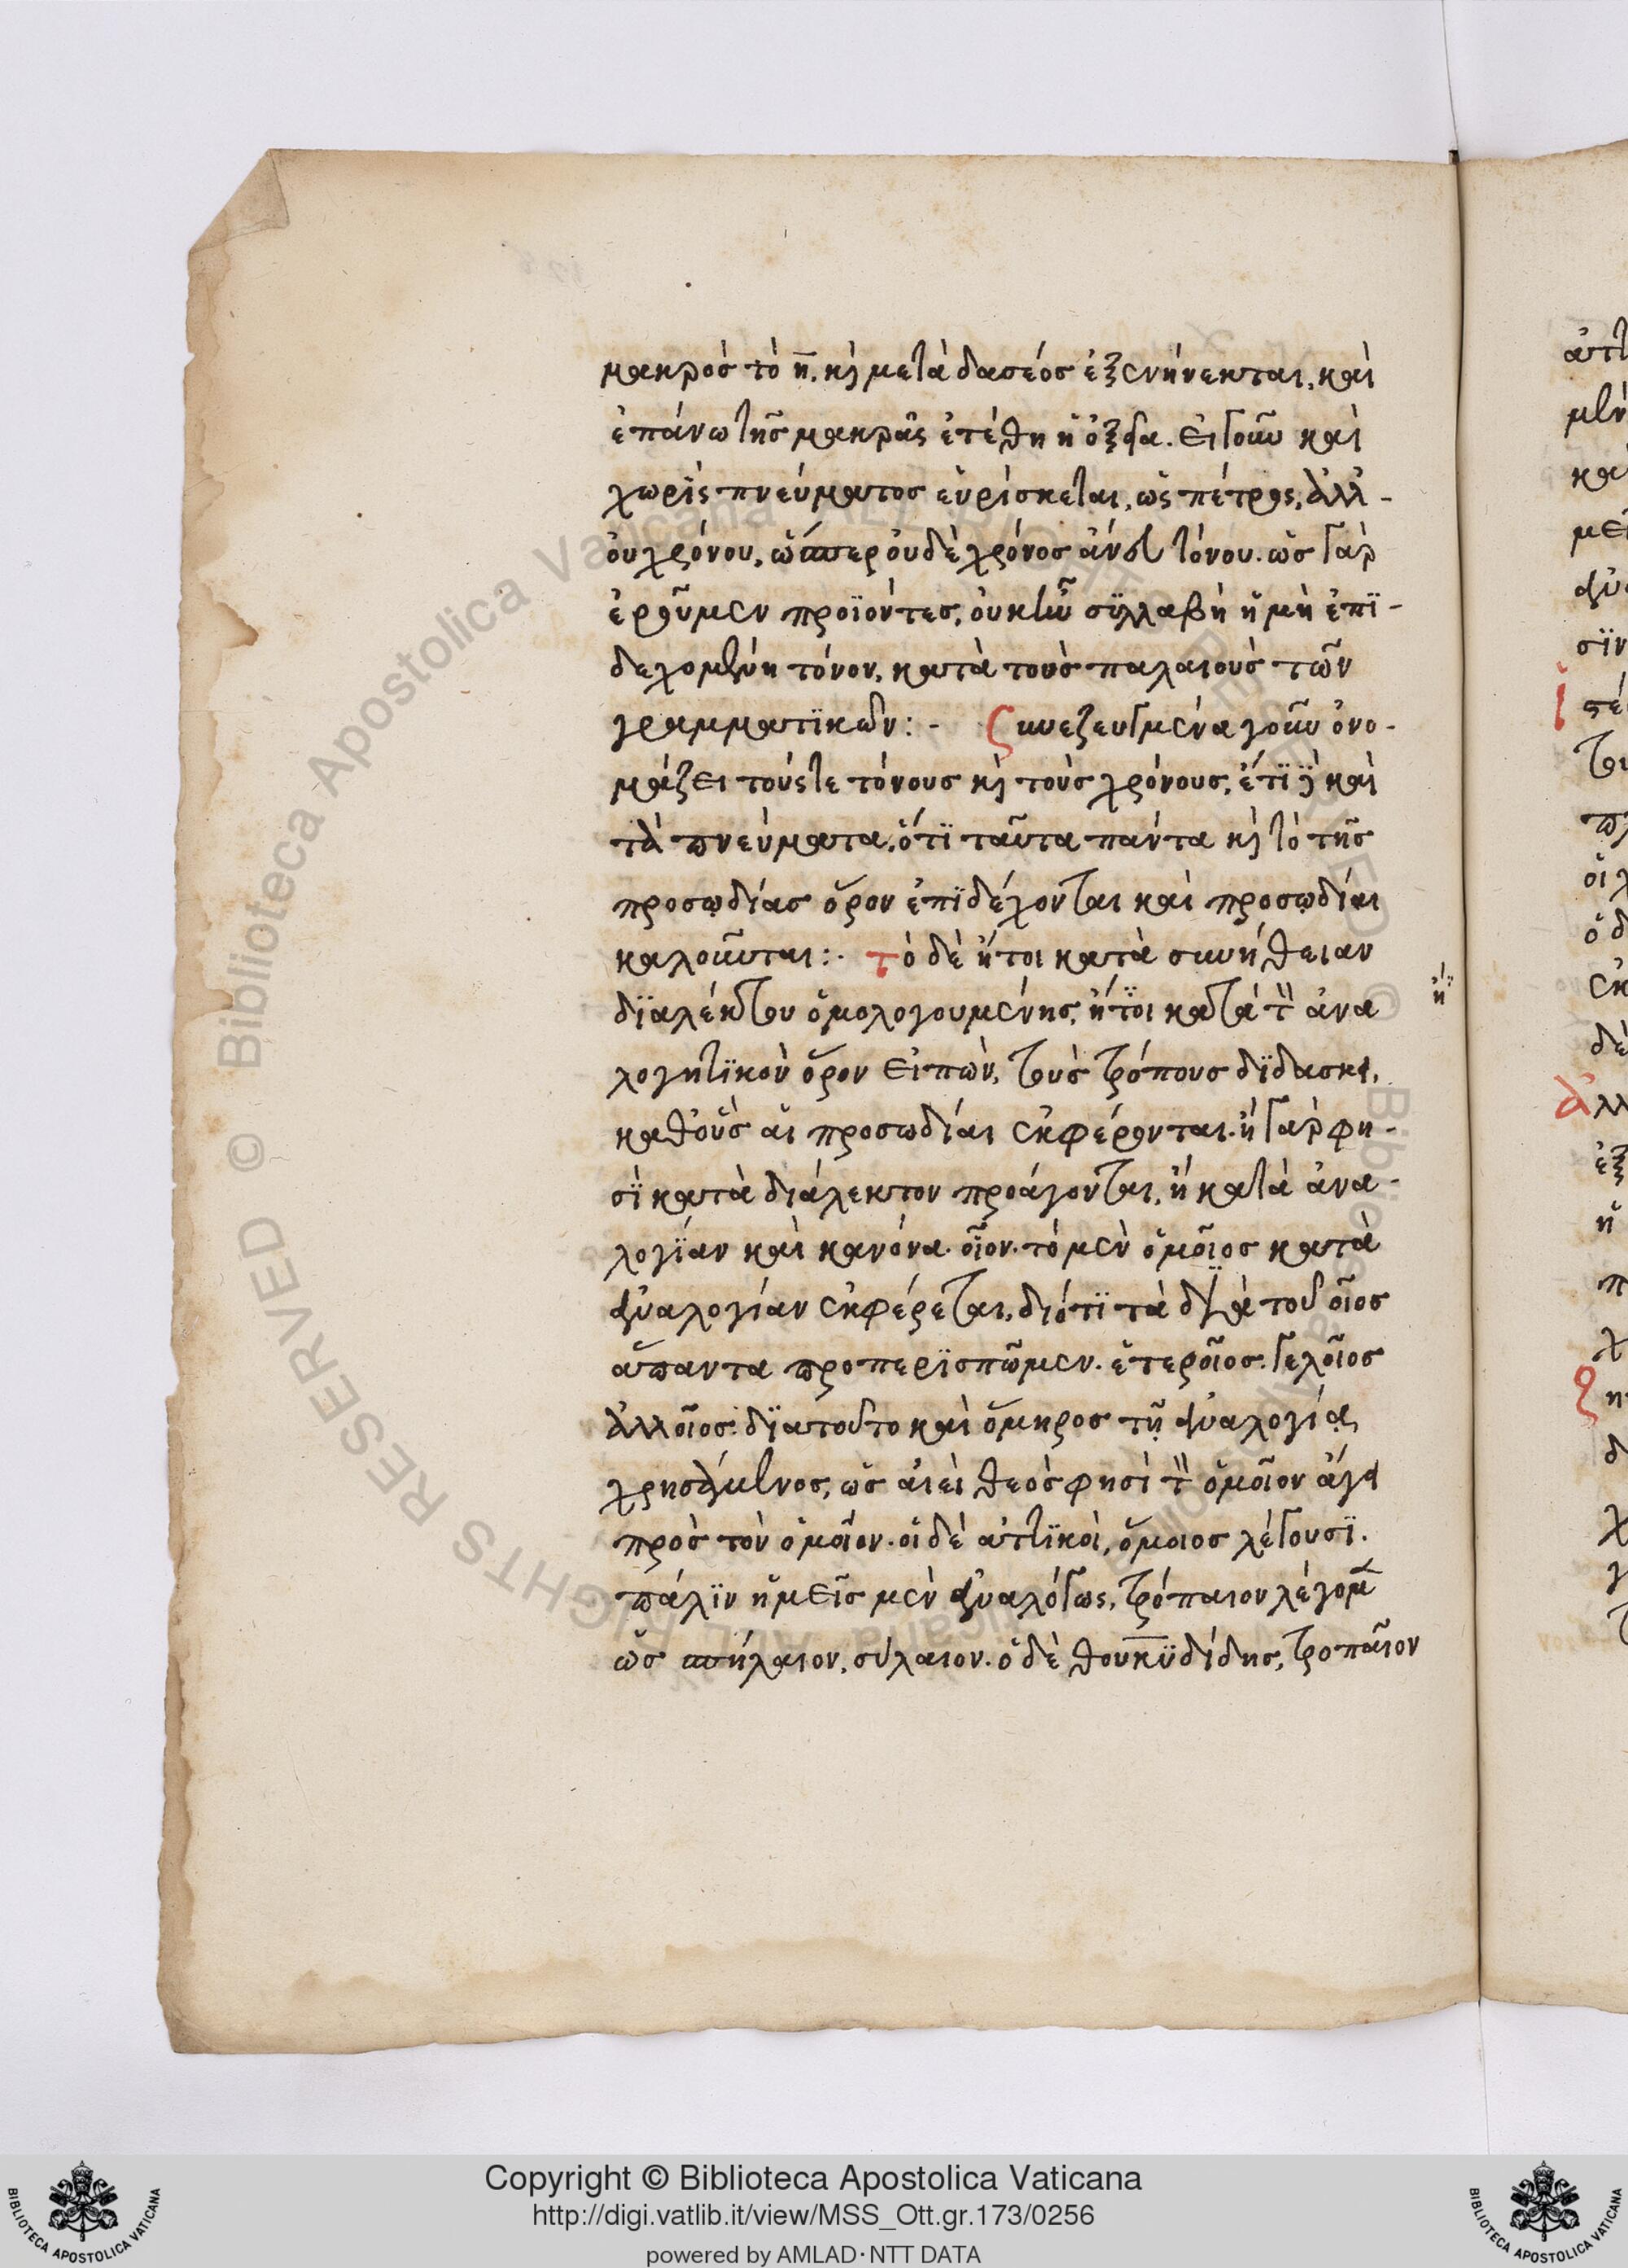 μακρὸς τὸ η̄. κὶ μετὰ δασέος ἐξενήνεκται, καὶ
ἐπάνω τῆς μακρᾶς ἐτέθη ἡ ὀξεῖα. εἰ γοῦν καὶ
χωρὶς πνεύματος εὑρίσκεται, ὡς πέτρος, ἀλλ᾽ -
οὐ χρόνου, ὥσπερ οὐδὲ χρόνος ἄνευ τόνου. ὡς γὰρ
ἐροῦμεν προϊόντες, οὐκ ἦν σϋλλαβὴ ἡ μὴ ἐπϊ -
δεχομένη τόνον, κατὰ τοὺς παλαιοὺς τῶν
γραμματϊκῶν : - Συνεζευγμένα γοῦν ὀνο -
μάζει τούς τε τόνους κὶ τοὺς χρόνους, ἔτϊ δὲ καὶ
τὰ πνεύματα, ὅτϊ ταῦτα πάντα κὶ τὸ τῆς
προσῳδίας ὅρον ἐπϊδέχονται καὶ προσῳδίαι
καλοῦνται : · τὸ δὲ ἤτοι κατὰ συνήθειαν
δϊαλέκτου ὁμολογουμένης, ἤτοι κατὰ τὸν ἀνα
λογητϊκὸν ὅρον εἰπὼν, τοὺς τρόπους δϊδάσκει,
καθ᾽ οὓς αἱ προσωδίαι ἐκφέρονται. ἢ γὰρ φη -
σϊ κατὰ διάλεκτον προάγονται, ἢ κατὰ ἀνα -
λογίαν καὶ κανόνα. οἷον. τὸ μὲν ὁμοῖος κατὰ
ἀναλογίαν ἐκφέρεται, διότϊ τὰ διὰ τοῦ οῖος
ἅπαντα προπερϊσπῶμεν. ἑτεροῖος. γελοῖος
ἀλλοῖος. δϊατοῦτο καὶ ὅμηρος τῇ ἀναλογίᾳ
χρησάμενος, ὡς αἰεὶ θεὸς φησὶ τὸν ὁμοῖον ἄγει
πρὸς τὸν ὁμοῖον. οἱ δὲ ἀττϊκοὶ, ὅμοιος λέγουσϊ.
πάλϊν ἡμεῖς μὲν ἀναλόγως, τρόπαιον λέγομεν
ὡς σπήλαιον, σύλαιον. ὁ δὲ θουκϋδίδης, τροπαῖον
Copyright © Biblioteca Apostolica Vaticana
http://digi.vatlib.it/view/MSS_Ott.gr.173/0256
powered by AMLAD·NTT DATA